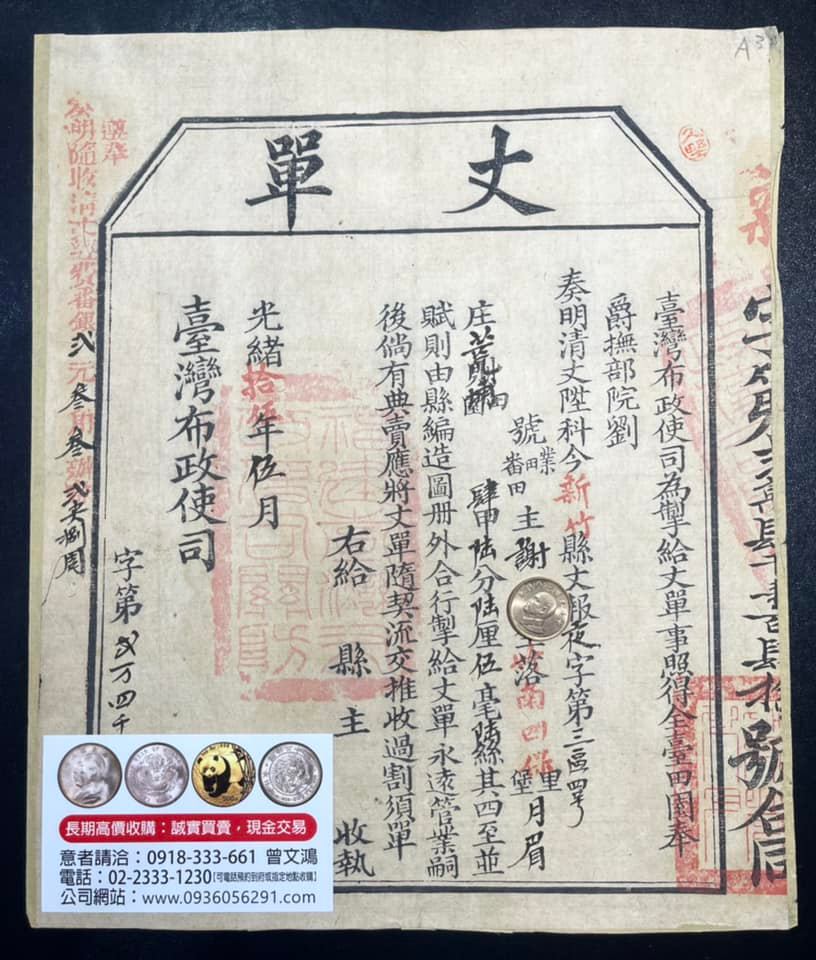 A3
丈單
臺灣布政使司為掣給丈單事照得全臺田園奉
爵撫部院劉
奏明清丈陞科今新竹縣丈報夜字第三區四
號業田
番田主謝
坐落
南四保
里
堡月眉
庄
肆甲陸分陆厘伍毫陆絲其四至並
賦則由縣編造圖册外合行掣給丈單永遠管業嗣
後倘有典賣應將丈單隨契流交推收過割須單
右給 縣 主 收執
光緒拾 年伍月
臺灣布政使司
字第 万四千
遵奉
奏明隨收清丈 費番銀
號合同
長期高價收購:誠實買賣,現金交易
意者請洽:0918-333-661 曾文鴻
電話:02-2333-1230【可電話預約到府或指定地點收購】
公司網站:www.0936056291.com